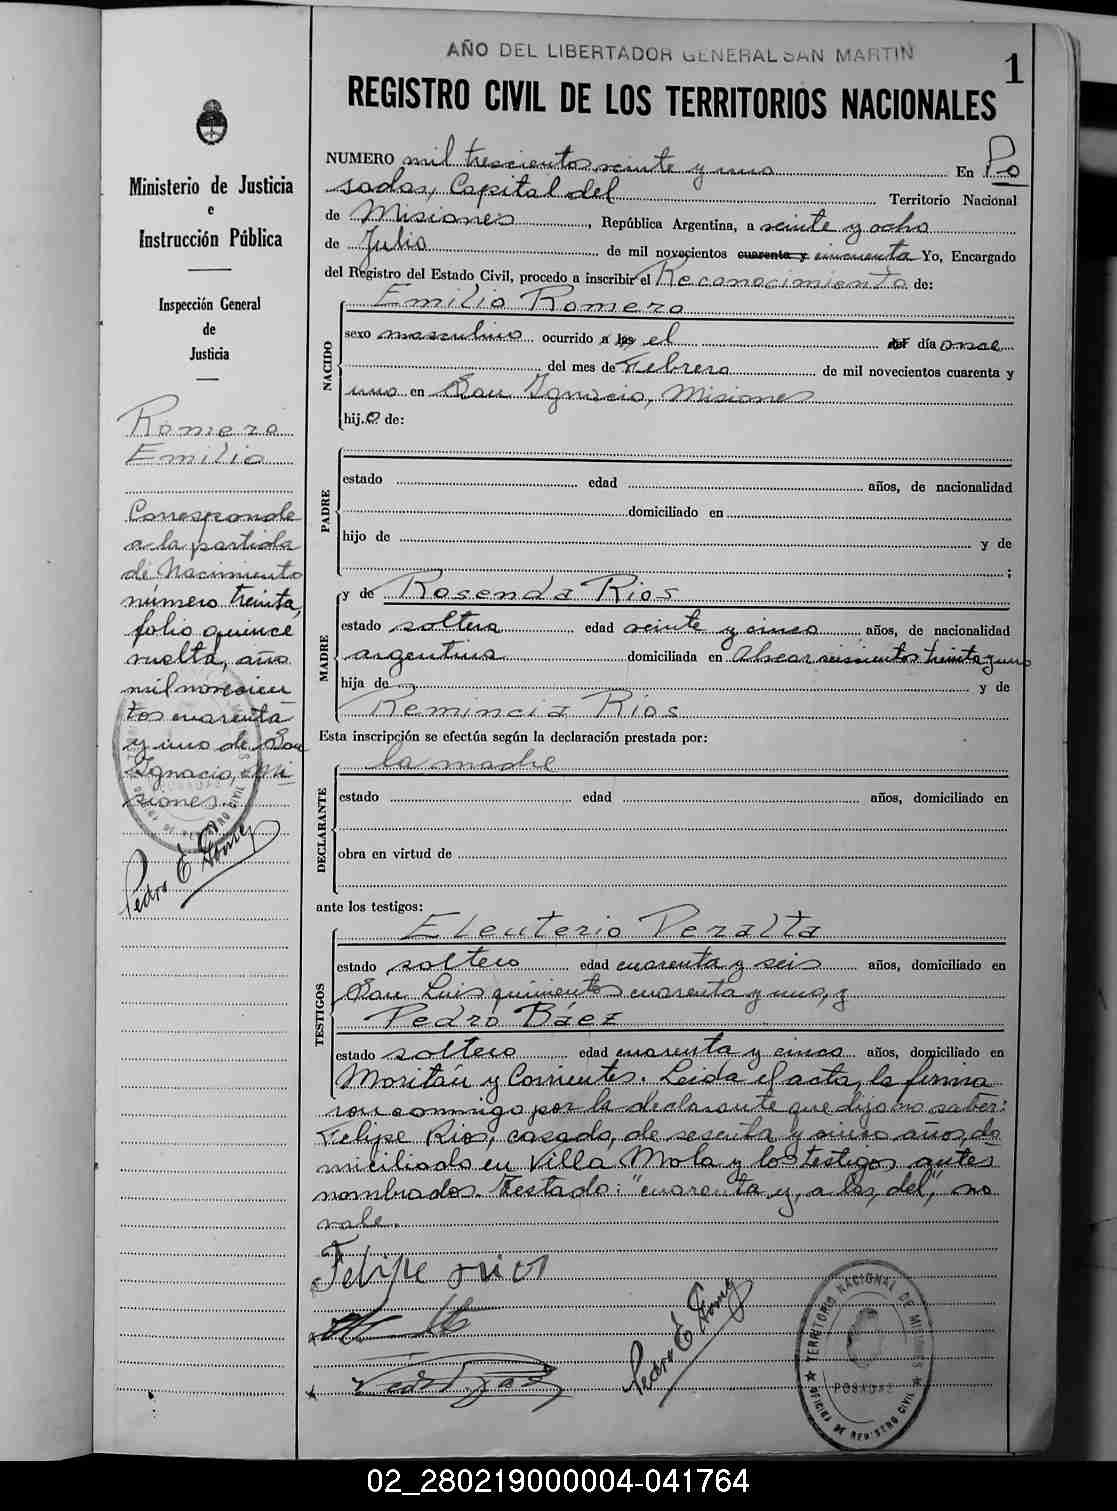 AÑO DEL LIBERTADOR GENERAL SAN MARTIN
1
REGISTRO CIVIL DE LOS TERRITORIOS NACIONALES
Ministerio de Justicia
e
Instrucción Pública
Inspección General
de
Justicia
Romero
Emilio
Corresponde
a la partida
de Nacimiento
número treinta,
folio quince
vuelta, año
mil novecien
tos cuarenta
y uno de San
Ignacio, Mi
siones.
Pedro E Gomez
NUMERO mil trescientos veinte y uno En Po
sadas, Capital del Territorio Nacional
de Misiones, República Argentina, a veinte y ocho
de Julio de mil novecientos cuarenta y cincuenta Yo, Encargado
del Registro del Estado Civil, procedo a inscribir el Reconocimiento de:
NACIDO
Emilio Romero
sexo masculino ocurrido a las el del día once
del mes de Febrero de mil novecientos cuarenta y
uno en San Ignacio, Misiones
hijo de:
PADRE
estado edad años, de nacionalidad
domiciliado en
hijo de y de
;
MADRE
y de Rosenda Rios
estado soltera edad veinte y cinco años, de nacionalidad
argentina domiciliada en Alvear seiscientos treinta y uno
hija de y de
Remincia Rios
Esta inscripción se efectúa según la declaración prestada por:
DECLARANTE
la madre
estado edad años, domiciliado en
obra en virtud de
ante los testigos:
TESTIGOS
Eleuterio Peralta
estado soltero edad cuarenta y seis años, domiciliado en
San Luis quinientos cuarenta y uno, y
Pedro Báez
estado soltero edad cuarenta y cinco años, domiciliado en
Moritán y Corrientes. Leida el acta, la firma
ron conmigo por la declarante que dijo no saber:
Felipe Rios, casado, de sesenta y cinco años, do
miciliado en Villa Mola y los testigos antes
nombrados. Testado: "cuarenta y, a las, del," no
vale.
Felipe rios
Pedro E Gomez
TERRITORIO NACIONAL DE MISIONES
POSADAS
OFICINA DE REGISTRO CIVIL
02_280219000004-041764